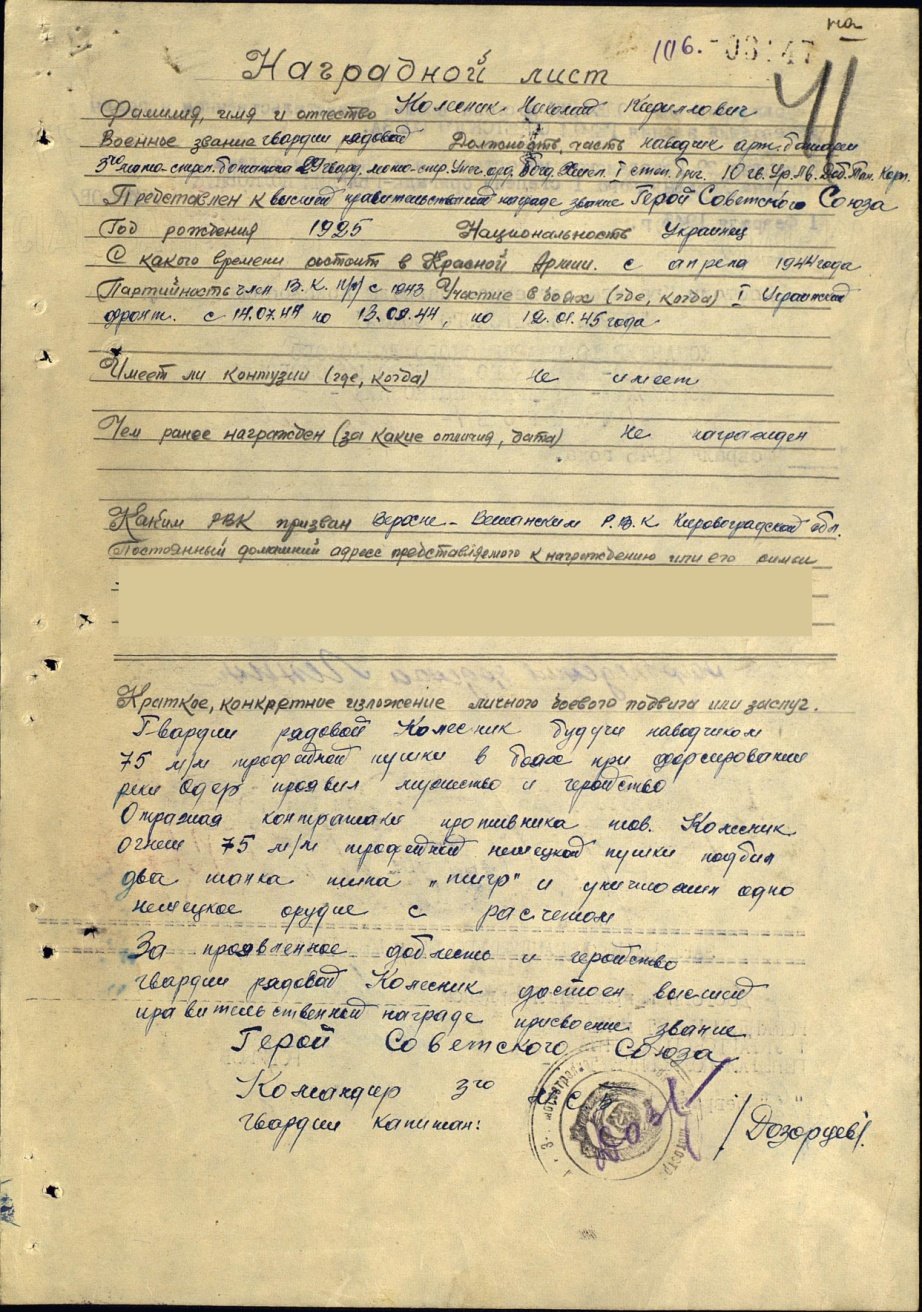 на
106. -03147
41
Наградной лист
Фамилия, имя и отчество Колесник Николай Кириллович
Военное звание гвардии рядовой Должность, часть наводчик арт. батареи
3го мото-стрел. батальона 29 гвард. мото-стр. Унеч. орд. Богд. Хмел. I степ. бриг. 10 гв. Ур. Льв. Доб. Тан. Корп.
Представлен к высшей правительственной награде звание Герой Советского Союза
Год рождения 1925 Национальность Украинец
С какого времени состоит в Красной Армии. с апреля 1944 года
Партийность член В.К.П/б/ с 1943 Участие в боях (где, когда) I Украинский
фронт. с 14.07.44 по 13.08.44, по 12.01.45 года
Имеет ли контузии (где, когда) Не имеет
Чем ранее награжден (за какие отличия, дата) Не награжден
Каким РВК призван Р.В.К Кировоградской обл.
Постоянный домашний адрес представляемого к награждению или его симьи
Краткое, конкретное изложение личного боевого подвига или заслуг.
Гвардии рядовой Колесник будучи наводчиком
75 м/м трофейной пушки в боях при форсировании
реки Одер проявил мужество и геройство
Отражая контратаки противника тов. Колесник
огнем 75 м/м трофейной немецкой пушки подбил
два танка типа „тигр" и уничтожил одно
немецкое орудие с расчетом
За проявленное доблесть и геройство
гвардии рядовой Колесник достоен высшей
правительственной награде присвоение звание
Герой Советского Союза
Командир 3го м с б
гвардии капитан: /Дозорцев/.